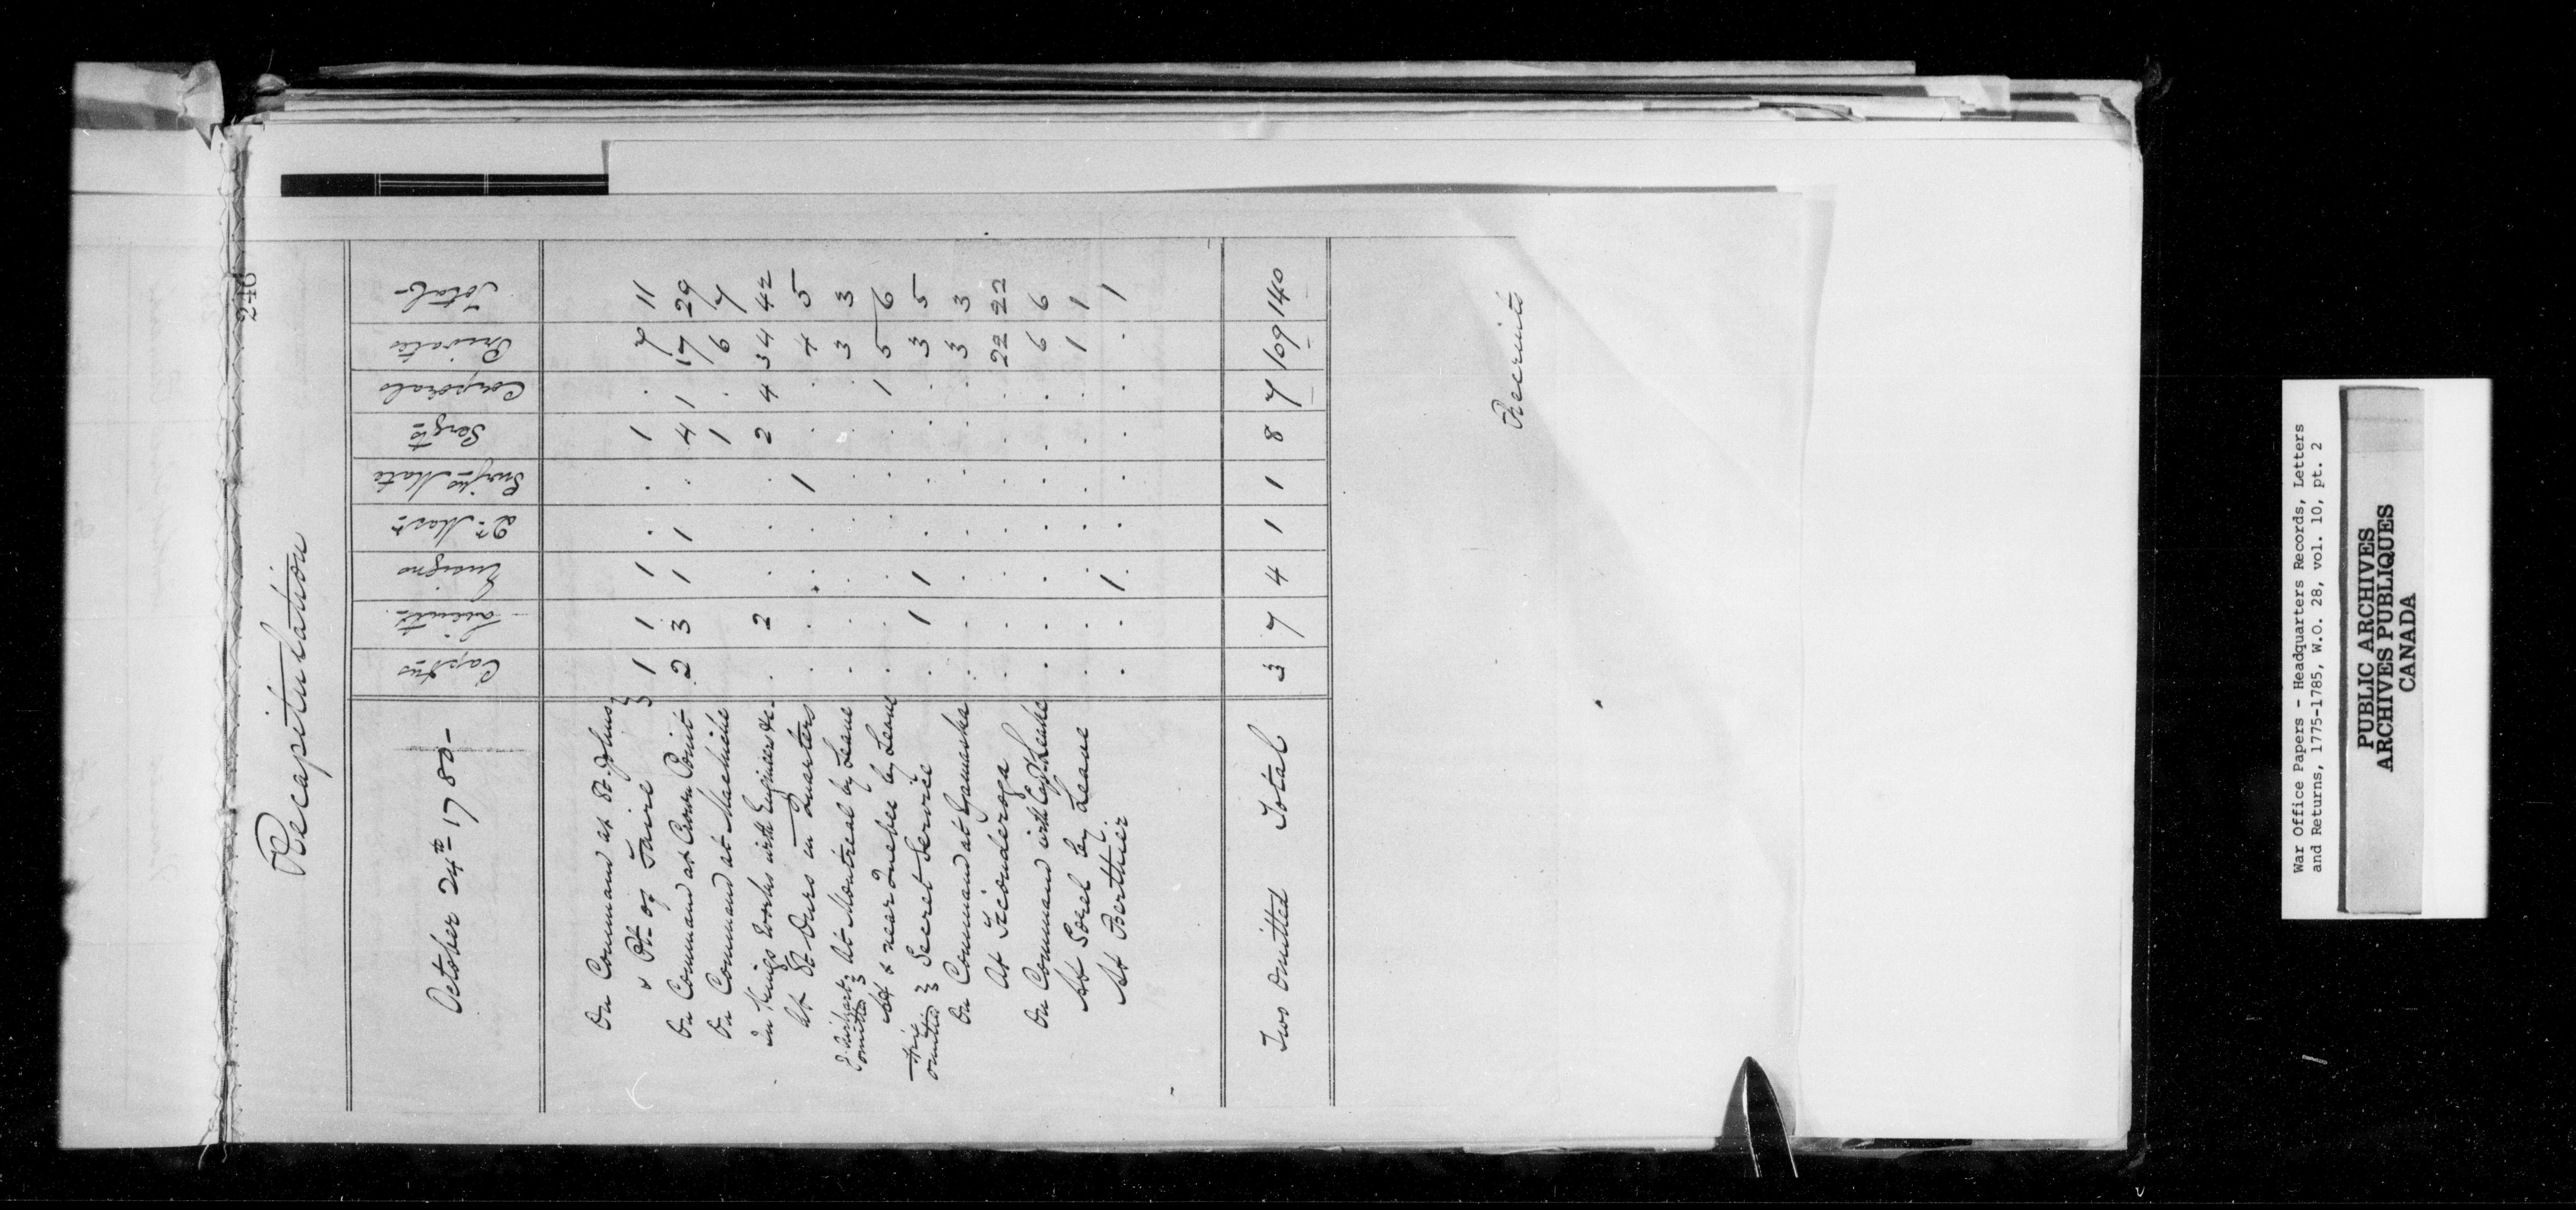 246
Recapitulation
October 24th 1780 - Capt.ns Lieut.ts Ensigns Qr. Mast.r Surg.ns Mate Serg.ts Corporals Privates Total
On Command at St. Johns }
& Pt. of Faire } 1 1 1 . . 1 . 7 11
On Command at Crown Point 2 3 1 1 . 4 1 17 29
On Command at Machiche 1 . 6 7
In Kings Works with Engineers &c. . 2 . . . 2 4 34 42
At St. Ours in Quarters . . . . 1 . . 4 5
omitted } At Montreal by Leave . . . . . . . 3 3
At & near Quebec by Leave . . . . . . 1 5 6
omitted } Secret Service . 1 1 . . . . 3 5
On Command at Yamaska . . . . . . . 3 3
At Ticonderoga . . . . . . . 22 22
On Command with Capt. Leake . . . . . . . 6 6
At Sorel by Leave . . . . . . . 1 1
At Berthier . . 1 . . . . . 1
Two Omitted Total 3 7 4 1 1 8 7 109 140
Recruits
War Office Papers - Headquarters Records, Letters
and Returns, 1775-1785, W.O. 28, vol. 10, pt. 2
PUBLIC ARCHIVES
ARCHIVES PUBLIQUES
CANADA